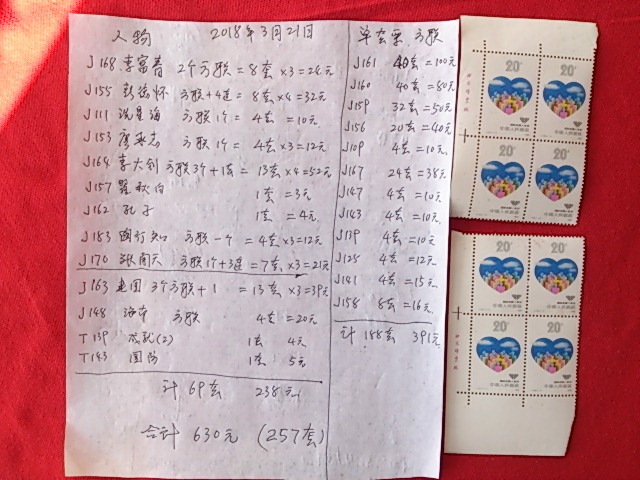 人物 2018年3月21日
J168 李富春 2个方联=8套×3=24元
J155 彭德怀 方联+4连=8套×4=32元
J111 冼星海 方联1个=4套=10元
J153 廖承志 方联1个=4套×3=12元
J164 李大钊 方联3个+1套=13套×4=52元
J157 瞿秋白 1套=3元
J162 孔子 1套=4元
J183 陶行知 方联一个=4套×3=12元
J170 张闻天 方联1个+3连=7套×3=21元
J163 建国 3个方联+1 =13套×3=39元
J148 海南 方联 4套=20元
T139 成就(2) 1套 4元
T143 国防 1套 5元
计 69套 238元
合计 630元 (257套)
单套票 方联
J161 40套=100元
J160 40套=80元
J159 32套=50元
J156 20套=40元
J109 4套=10元
J167 24套=38元
J147 4套=10元
J143 4套=10元
J139 4套=10元
J125 4套=12元
J141 4套=15元
J158 8套=16元
计 188套 391元
20分 20分
中国人民邮政 中国人民邮政
中国人民邮政 中国人民邮政
20分 20分
中国人民邮政 中国人民邮政
20分 20分
中国人民邮政 中国人民邮政